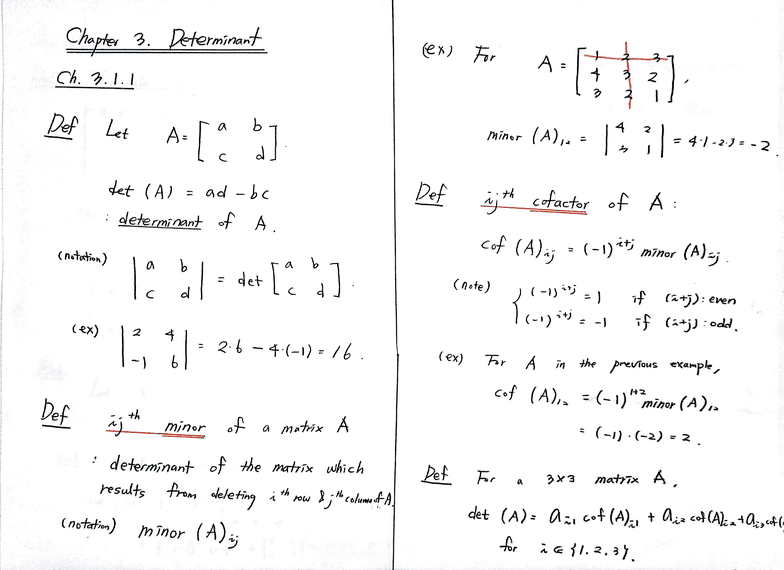 Chapter 3. Determinant
Ch. 3.1.1
Def Let A = [ a b
c d ].
det (A) = ad - bc
: determinant of A.
(notation) | a b
c d | = det [ a b
c d ].
(ex) | 2 4
-1 6 | = 2·6 - 4·(-1) = 16.
Def ij th minor of a matrix A
: determinant of the matrix which
results from deleting i th row & j th column of A.
(notation) minor (A)ij
(ex) For A = [ 1 2 3
4 3 2
3 2 1 ],
minor (A)12 = | 4 2
3 1 | = 4·1 - 2·3 = -2.
Def ij th cofactor of A :
cof (A)ij = (-1)^i+j minor (A)ij.
(note) { (-1)^i+j = 1 if (i+j) : even
(-1)^i+j = -1 if (i+j) : odd.
(ex) For A in the previous example,
cof (A)12 = (-1)^1+2 minor (A)12
= (-1)·(-2) = 2.
Def For a 3×3 matrix A,
det (A) = ai1 cof (A)i1 + ai2 cof (A)i2 + ai3 cof (
for i ∈ {1, 2, 3}.